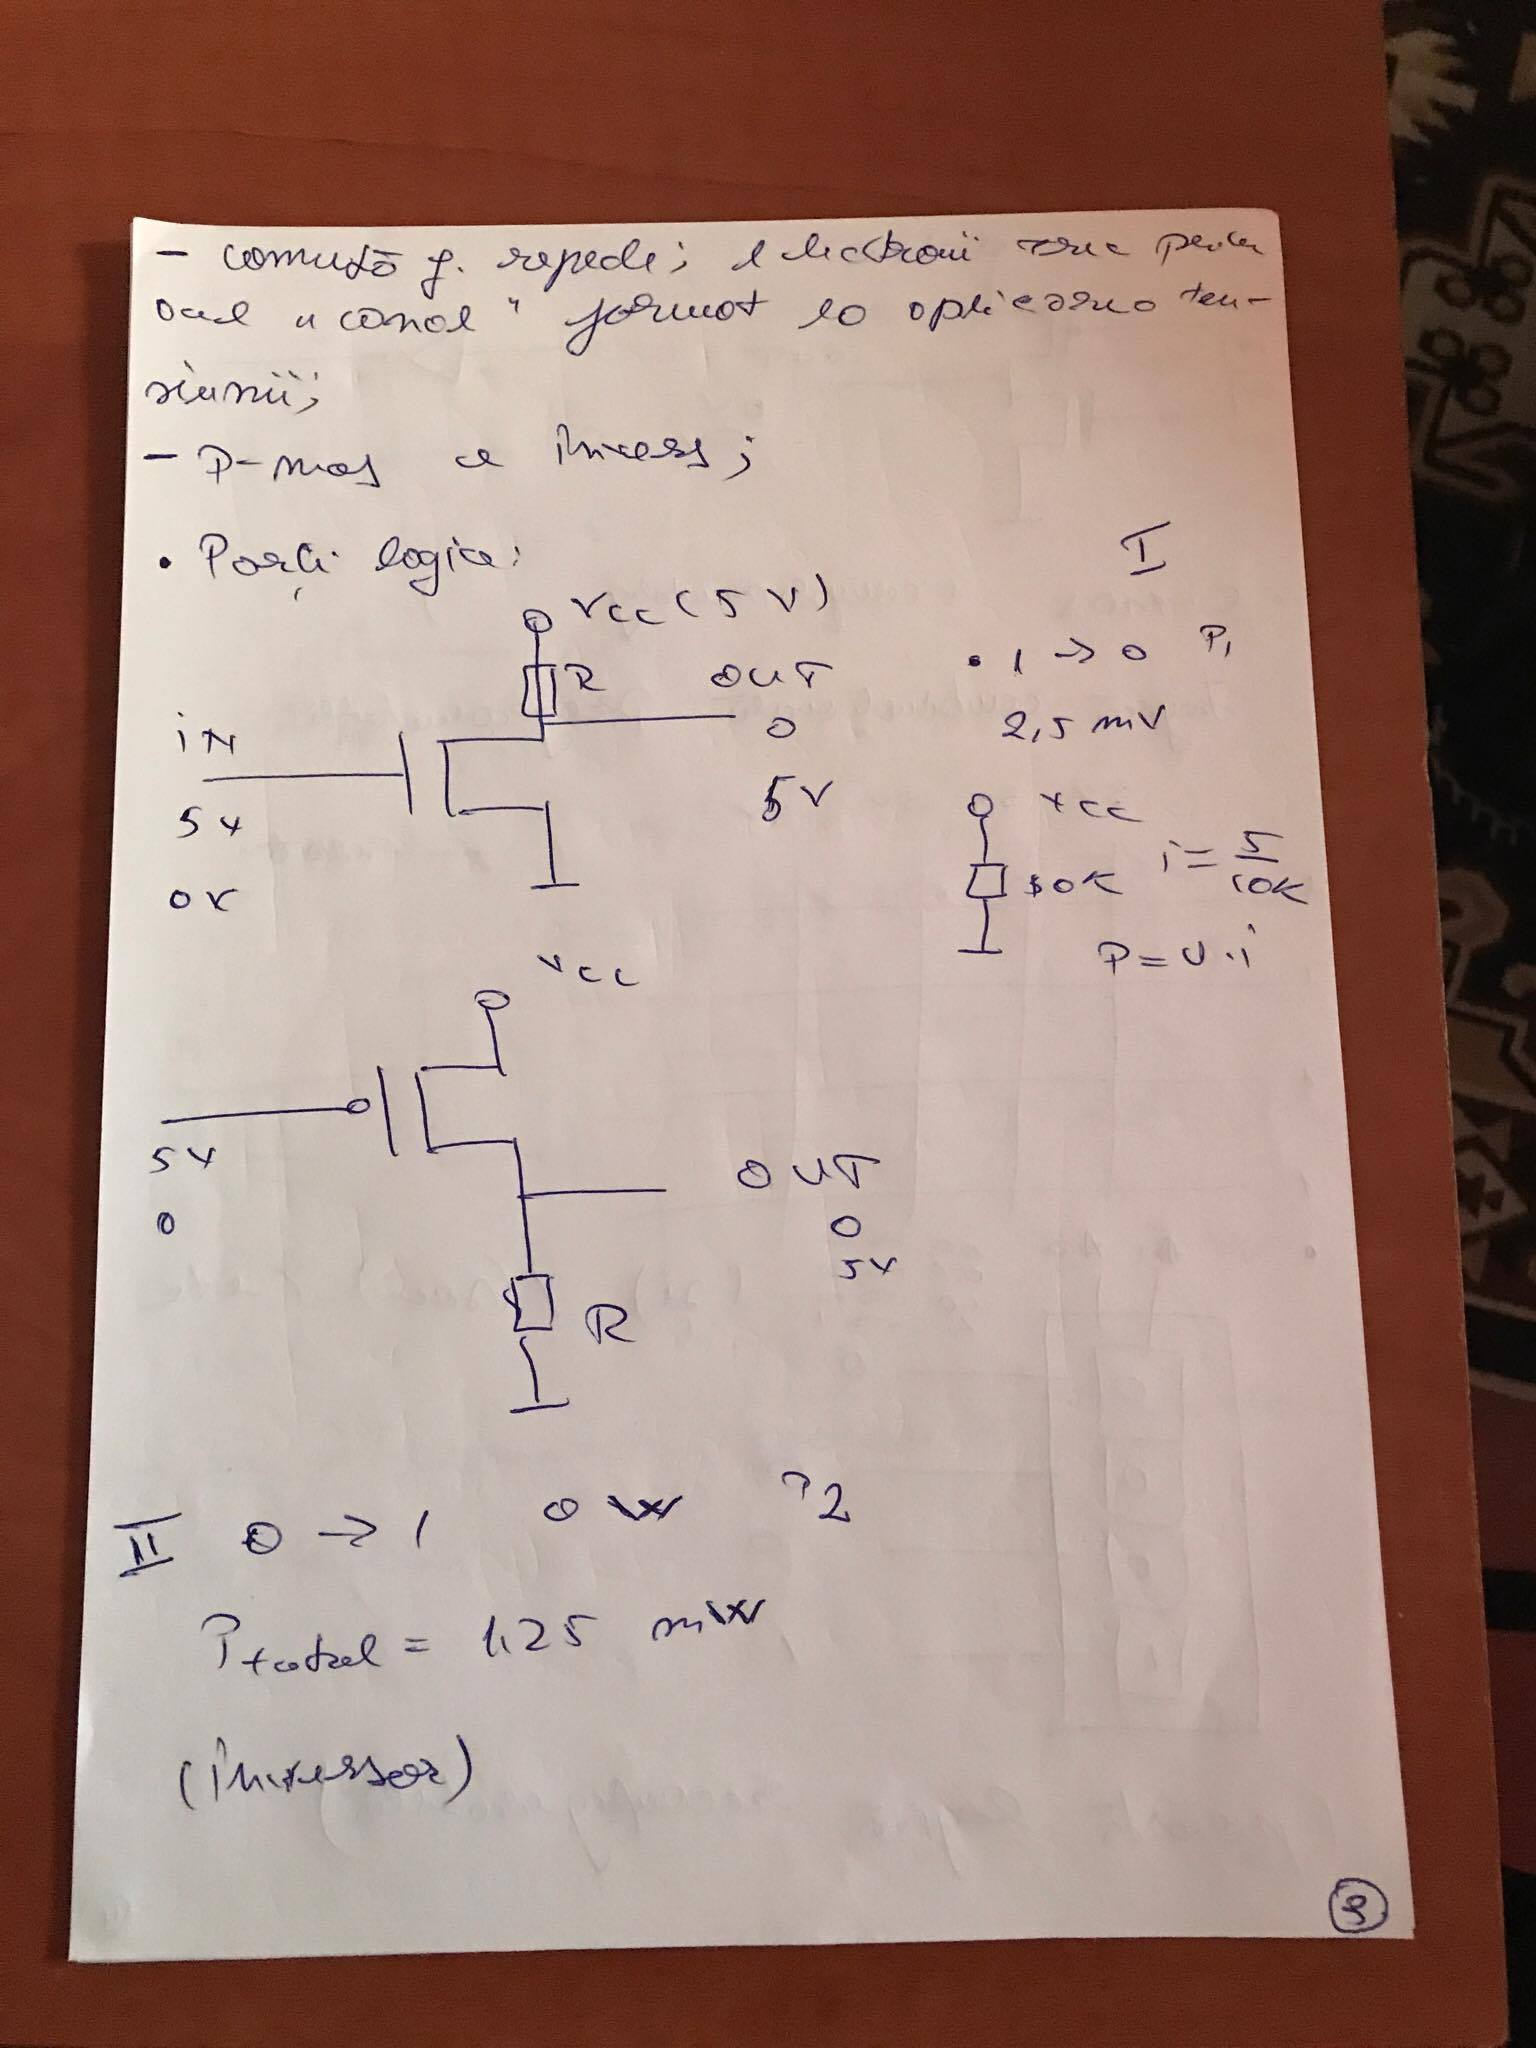 - comută f. repede; electronii trec pe la
"canal" format la aplicarea ten-
siunii;
- P-mos e invers;
• Porți logice:
I
VCC (5V)
R
OUT
• 1 → 0 P1
iN
0
2,5 mV
5V
5V
VCC
0V
10K
i = 5/10K
P = U·i
VCC
5V
0
OUT
0
5V
R
II 0 → 1 0W P2
Ptotal = 1,25 mW
(inversor)
9